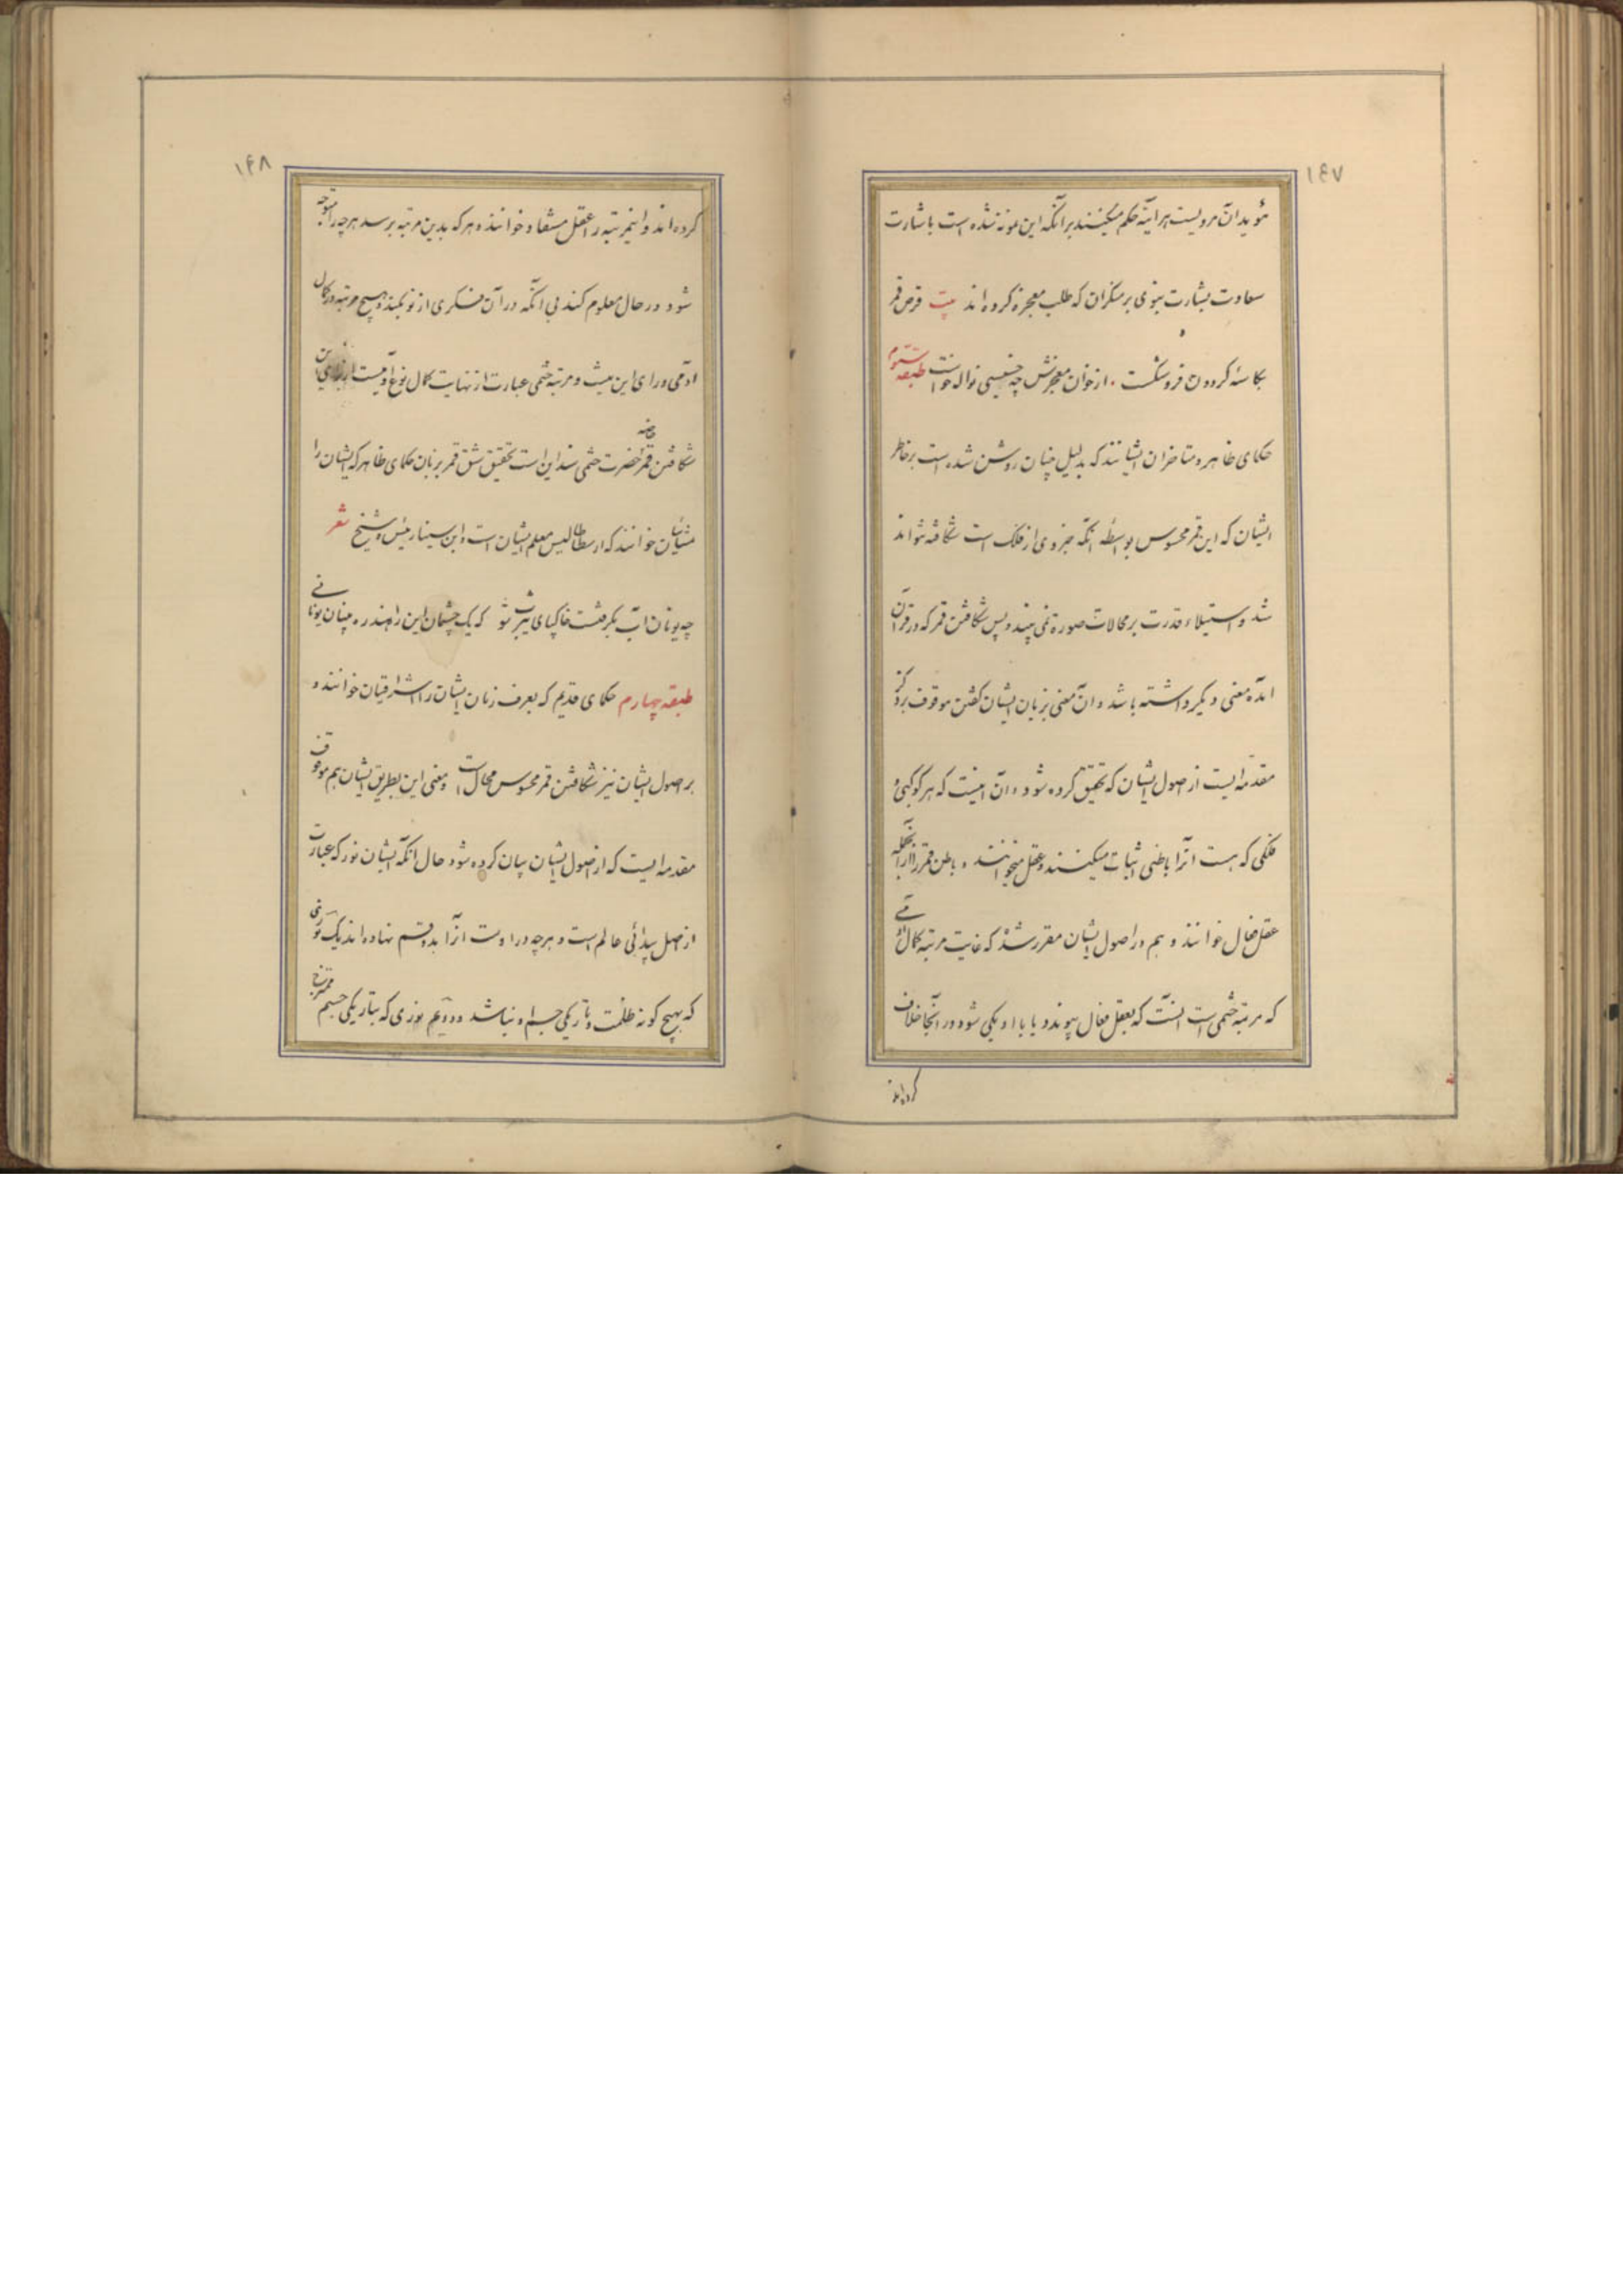 ۱۴۷
مؤید آن مرویست هر آینه حکم میکنند بر آنکه این مونه نشده است باشارت
سعادت بشارت نبوی بر منکران که طلب معجزه کرده‌اند بیت قرص قمر
بکاسهٔ گردون فرو شکست از خوان معجزش چه خسیسی نواله خواست طبقه سیوم
حکمای ظاهر و متاخران ایشانند که بدلیل چنان روشن شده است بر خاطر
ایشان که این قمر محسوس بواسطه آنکه جزوی از فلک است شکافته نتواند
شد و استیلاء قدرت بر محالات صورة نمی بندد پس شکافتن قمر که در قرآن
آمده معنی دیگر داشته باشد و آن معنی بزبان ایشان گفتن موقوف بر ذکر
مقدمه ایست از اصول ایشان که تحقیق کرده شود و آن اینست که هر کوکبی و
فلکی که هست آنرا باطنی اثبات میکنند و عقل میخوانند و باطن قمر را از آنجمله
عقل فعال خوانند و هم در اصول ایشان مقرر شد که غایت مرتبه کمال آدمی
که مرتبه ختمی است آنست که بعقل فعال پیوندد یا با او یکی شود در آنجا خلاف
کرده‌اند
۱۴۸
کرده‌اند و اینمرتبه را عقل مستفاد خوانند و هر که بدین مرتبه برسد هرچه را متوجه
شود در حال معلوم کند بی آنکه در آن فکری از نو بکند و هیچ مرتبه در کمال
آدمی ورای این نیست و مرتبه ختمی عبارت از نهایت کمال نوع آدمیست
شکافتن قمر خاصه حضرت ختمی شد این است تحقیق شق قمر بزبان حکمای ظاهر که ایشان را
مشائیان خوانند که ارسطاطالیس معلم ایشان است و ابن سینا رئیس و شیخ شعر
چه یونان آب بگرفتست خاکپای یثرب شو که یک چشمان این راهند ره بینان یونانی
طبقه چهارم حکمای قدیم که بعرف زمان ایشان را اشراقیان خوانند و
بر اصول ایشان نیز شکافتن قمر محسوس محال است و معنی این بطریق ایشان هم موقوف
مقدمه ایست که از اصول ایشان بیان کرده شود حال آنکه ایشان نور که عبارت
از اصل پیدائی عالم است و هرچه در اوست آنرا بدو قسم نهاده‌اند یک نوری
که بهیچ گونه ظلمت و تاریکی همراه نباشد و دویم نوری که بتاریکی جسم ممتزج